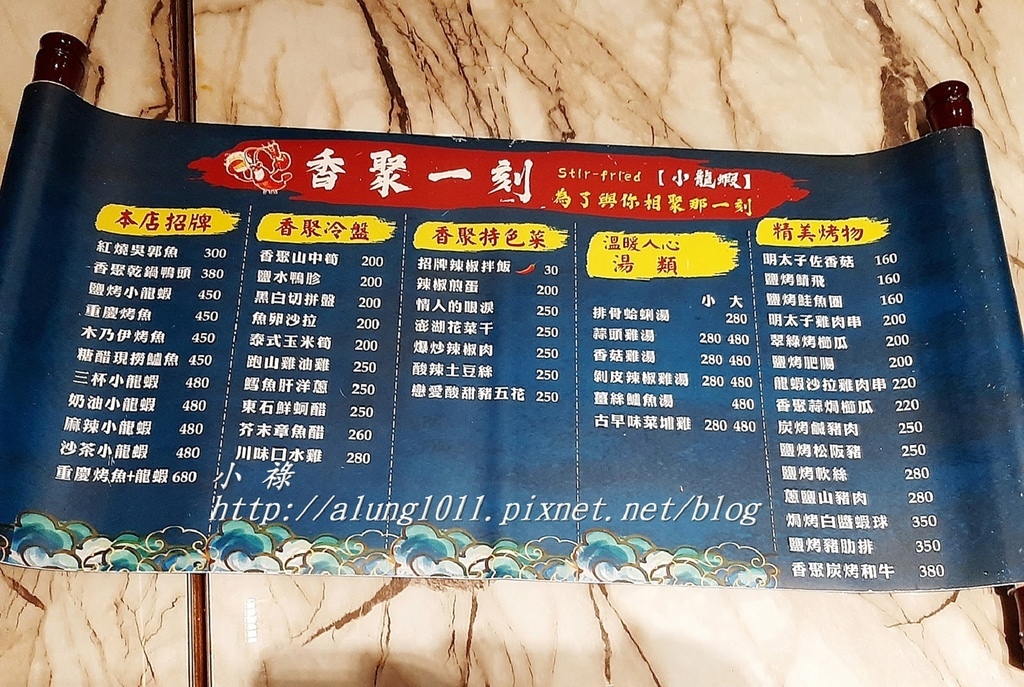 香聚一刻 Stir-fried【小龍蝦】
為了與你相聚那一刻
本店招牌
紅燒吳郭魚 300
香聚乾鍋鴨頭 380
鹽烤小龍蝦 450
重慶烤魚 450
木乃伊烤魚 450
糖醋現撈鱸魚 450
三杯小龍蝦 480
奶油小龍蝦 480
麻辣小龍蝦 480
沙茶小龍蝦 480
重慶烤魚+龍蝦 680
香聚冷盤
香聚山中筍 200
鹽水鴨胗 200
黑白切拼盤 200
魚卵沙拉 200
泰式玉米筍 200
跑山雞油雞 250
鱈魚肝洋蔥 250
東石鮮蚵醋 250
芥末章魚醋 260
川味口水雞 280
香聚特色菜
招牌辣椒拌飯 30
辣椒煎蛋 200
情人的眼淚 250
澎湖花菜干 250
爆炒辣椒肉 250
酸辣土豆絲 250
戀愛酸甜豬五花 250
溫暖人心
湯類
小 大
排骨蛤蜊湯 280
蒜頭雞湯 280 480
香菇雞湯 280 480
剝皮辣椒雞湯 280 480
薑絲鱸魚湯 480
古早味菜埔雞 280 480
精美烤物
明太子佐香菇 160
鹽烤鯖飛 160
鹽烤鮭魚圈 160
明太子雞肉串 200
翠綠烤櫛瓜 200
鹽烤肥腸 200
龍蝦沙拉雞肉串 220
香聚蒜焗櫛瓜 220
炭烤鹹豬肉 250
鹽烤松阪豬 250
鹽烤軟絲 280
蔥鹽山豬肉 280
焗烤白醬蝦球 350
鹽烤豬肋排 350
香聚炭烤和牛 380
小 祿
http://alung1011.pixnet.net/blog